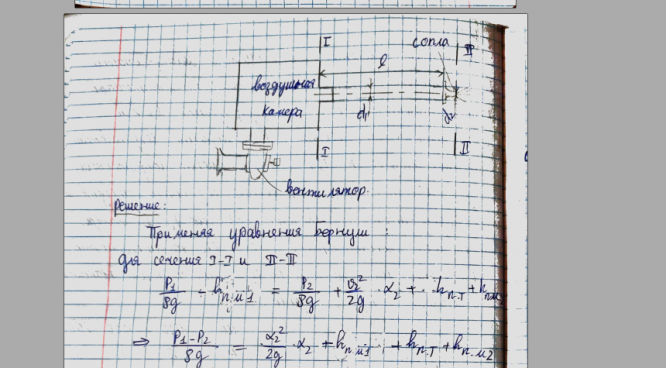 I
сопла
II
l
воздушная
камера
d₁
d₂
I
II
вентилятор.
Решение:
Применяя уравнения Бернули :
для сечения I-I и II-II
P₁/ρg - hп.м1 = P₂/ρg + υ₂²/2g · α₂ + hп.т + hп.м
⇒ P₁-P₂/ρg = α₂²/2g · α₂ + hп.м1 + hп.т + hп.м2